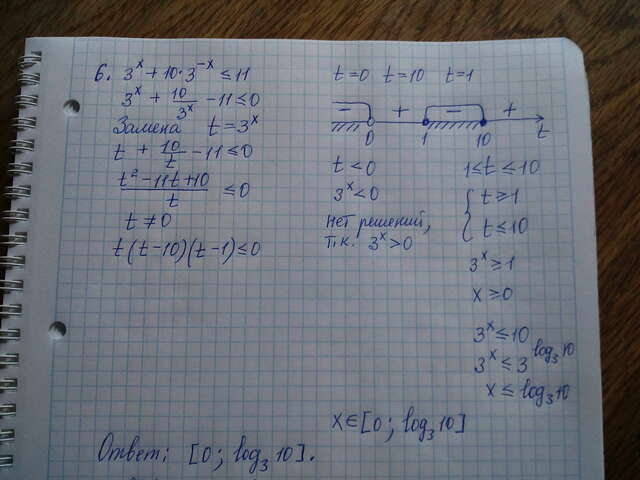 6. 3^x + 10·3^{-x} ≤ 11
3^x + 10/3^x - 11 ≤ 0
Замена t = 3^x
t + 10/t - 11 ≤ 0
(t² - 11t + 10)/t ≤ 0
t ≠ 0
t(t-10)(t-1) ≤ 0
t=0 t=10 t=1
- + - +
0 1 10 t
t < 0
3^x < 0
нет решений,
т.к. 3^x > 0
1 ≤ t ≤ 10
{ t ≥ 1
t ≤ 10
3^x ≥ 1
x ≥ 0
3^x ≤ 10
3^x ≤ 3^{log₃10}
x ≤ log₃10
x ∈ [0; log₃10]
Ответ: [0; log₃10].